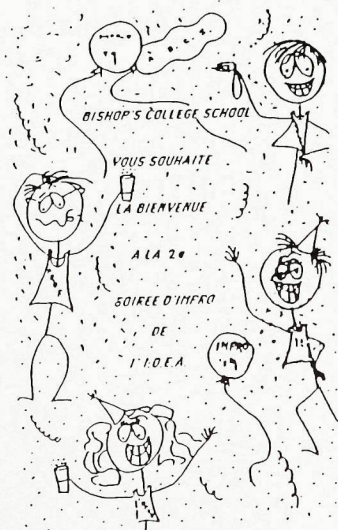 IMPRO
19
A B.C.S.
BISHOP'S COLLEGE SCHOOL
VOUS SOUHAITE
LA BIENVENUE
A LA 2e
SOIREE D'IMPRO
DE
l'I.O.E.A.
IMPRO
19